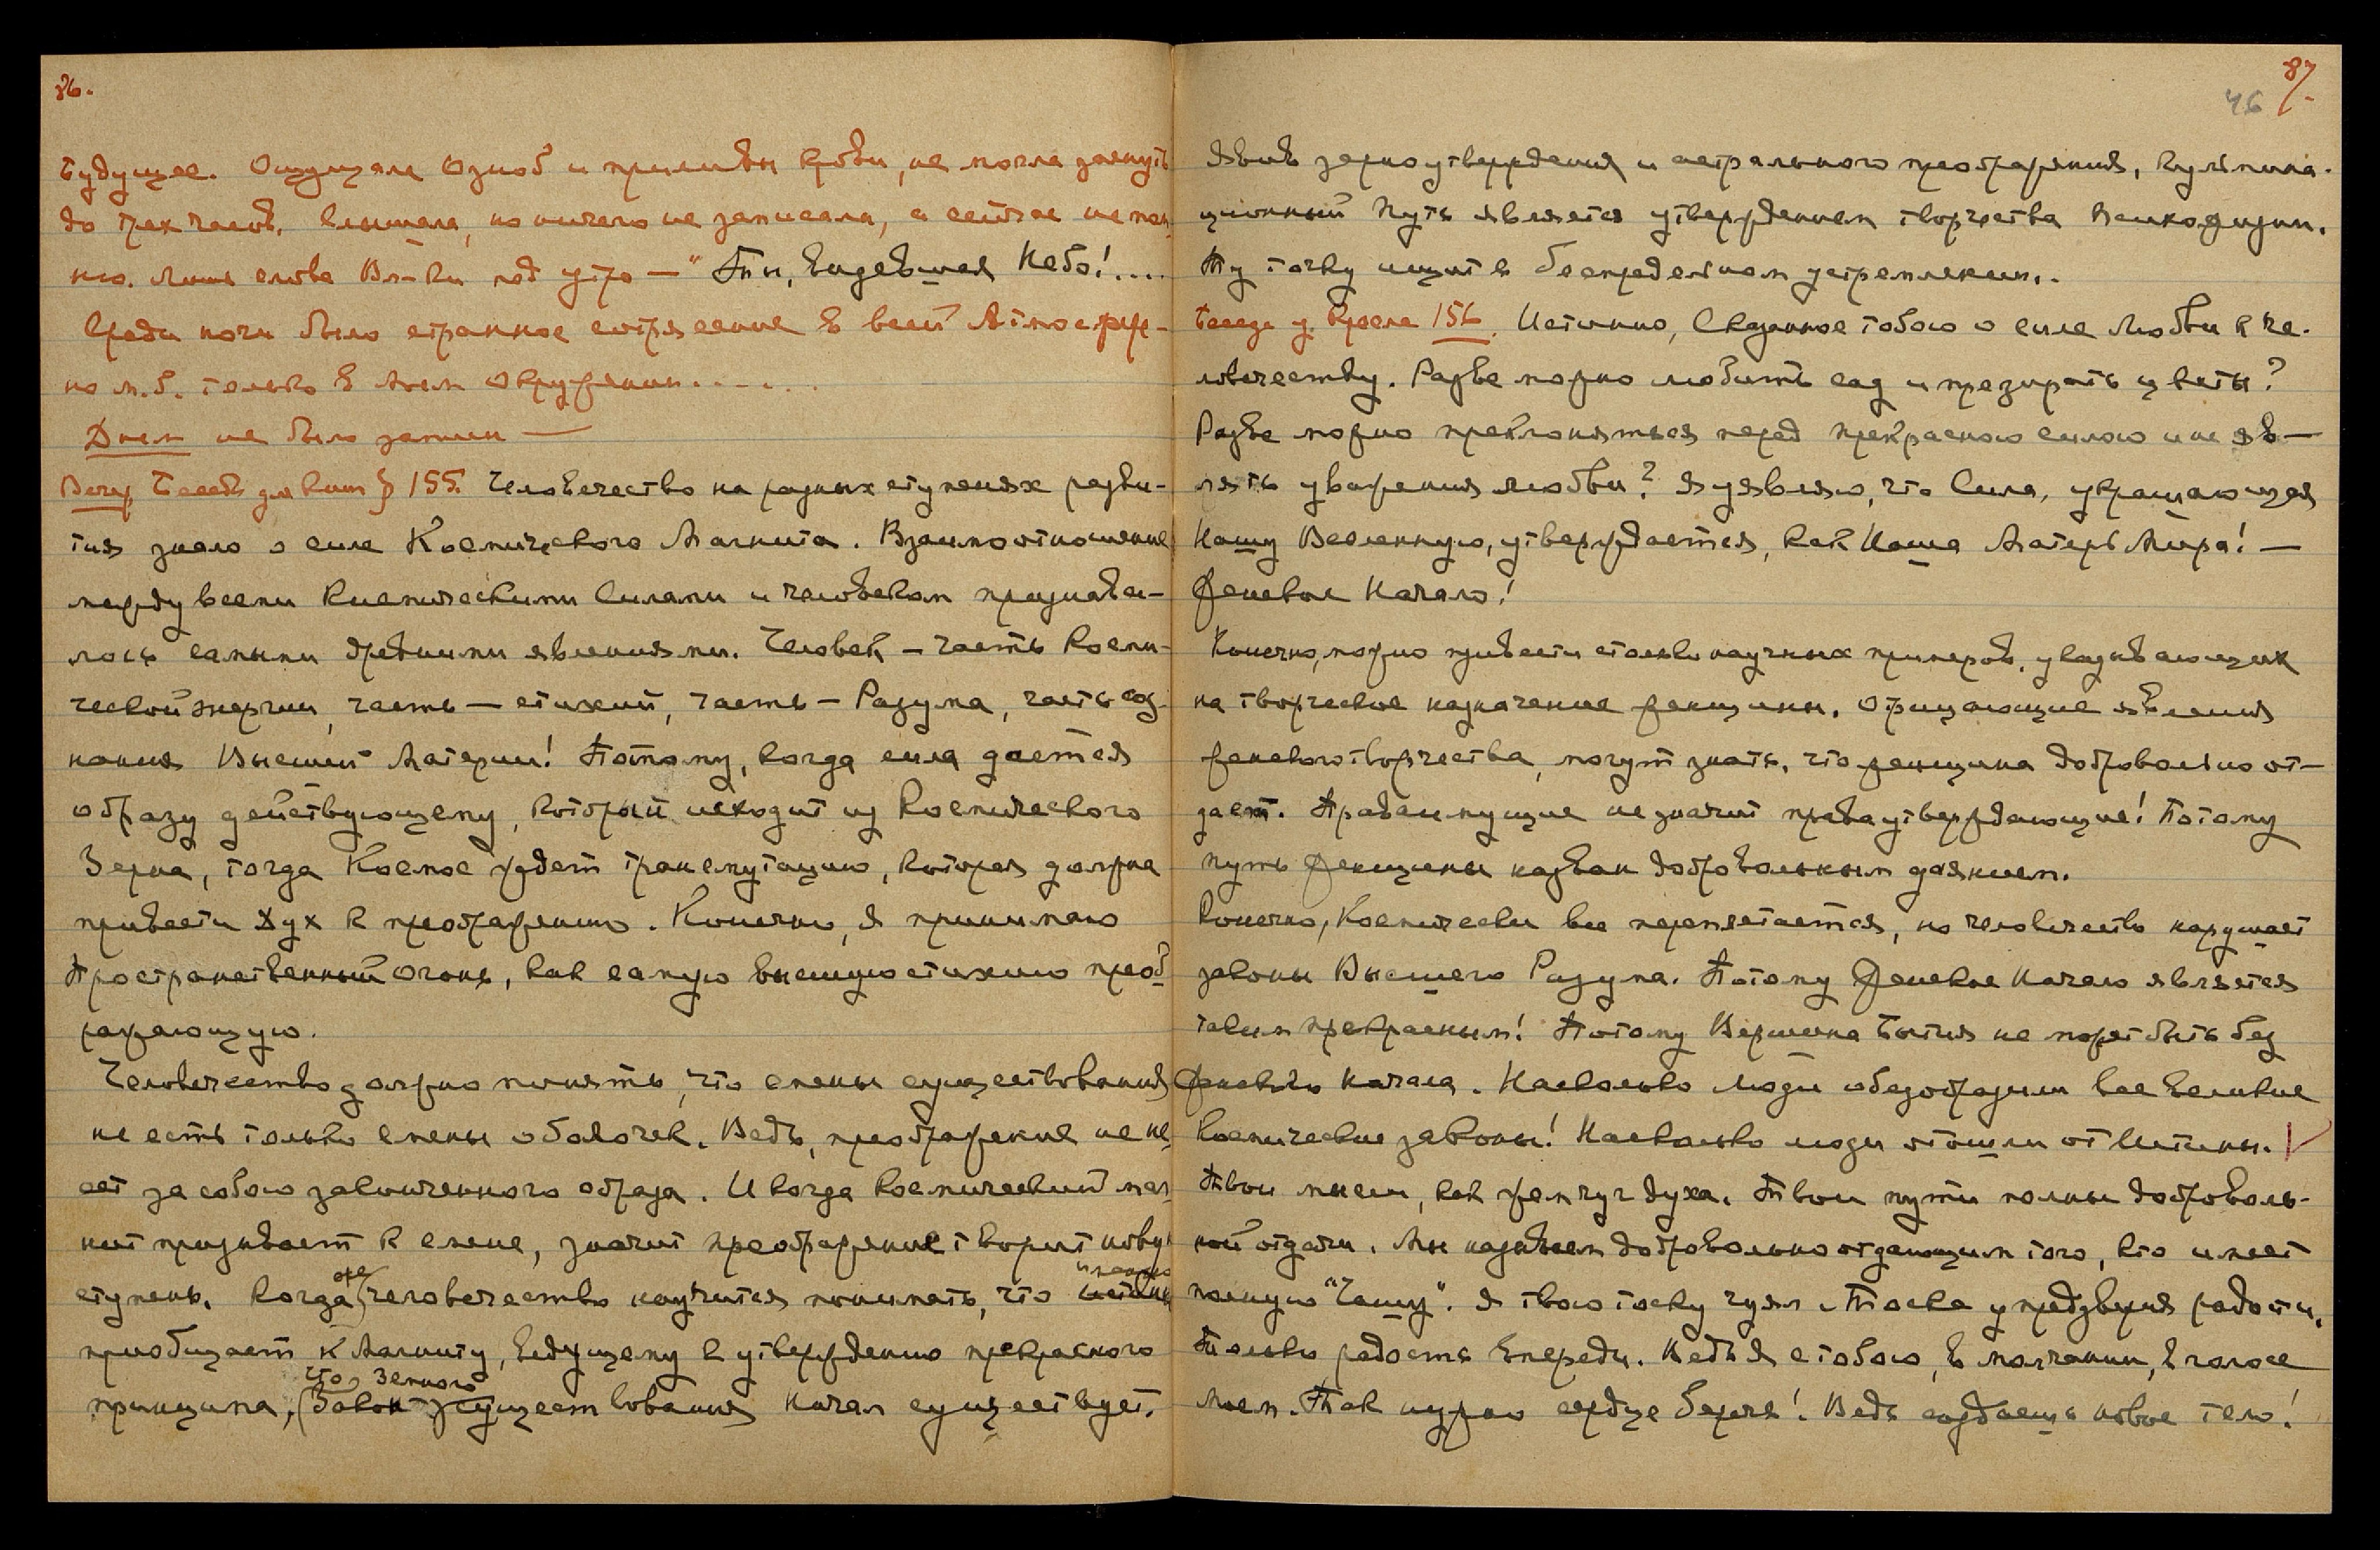 86.
будущее. Ощущала озноб и приливы крови, не могла заснуть
до трех часов. Слышала, но ничего не записала, а сейчас не пом-
ню. Лишь слова Вл-ки под утро — "Ты, видевшая Небо!....
Среди ночи было странное сотрясение в всей Атмосфере-
но м.б. только в моем окружении.......
Днем не было записи —
Вечер. Беседа для книг § 155. Человечество на разных ступенях разви-
тия знало о силе Космического Магнита. Взаимоотношение
между всеми космическими Силами и человеком признава-
лось самыми древними явлениями. Человек – часть косми-
ческой энергии, часть — стихий, часть – Разума, часть соз-
нания Высшей Материи! Потому, когда сила дается
образу действующему, который исходит из Космического
Зерна, тогда Космос ждет трансмутацию, которая должна
привести Дух к преображению. Конечно, я принимаю
Пространственный огонь, как самую высшую стихию преоб-
ражающую.
Человечество должно понять, что смены существования
не есть только смены оболочек. Ведь, преображение не не-
сет за собою законченного образа. И когда космический маг-
нит призывает к смене, значит преображение творит новую
ступень. Когда же человечество научится понимать, что
приобщает к Магниту, ведущему к утверждению прекрасного
принципа, что Закон Земного существования Начал существует.
87.
46
явив зерно утверждения и астрального преображения. Кульмина-
ционный Путь является утверждением творчества Всиходящим.
Ту точку ищите в беспредельном устремлении..
Беседа у Кресла 156. Истинно, Сказанное тобою о силе Любви к че-
ловечеству. Разве можно любить сад и презирать цветы?
Разве можно преклоняться перед прекрасною силою и не яв—
лять уважения любви? Я уявляю, что Сила, украшающая
Нашу Вселенную, утверждается, как Наша Матерь Мира! —
Женское Начало!
Конечно, можно привести столько научных примеров, указывающих
на творческое назначение женщины. Отрицающие явления
женского творчества, могут знать, что женщина добровольно от—
дает. Права имущие не значит права утверждающие! Потому
путь Женщины назван добровольным даянием.
Конечно, Космически все переплетается, но человечество нарушает
законы Высшего Разума. Потому Женское Начало является
таким прекрасным! Потому Вершина Бытия не может быть без
Женского Начала. Насколько люди обезобразили все великие
космические законы! Насколько люди отошли от Истины.
Твои мысли, как жемчуг духа. Твои пути полны доброволь-
ной отдачи. Мы называем добровольно отдающим того, кто имеет
полную "Чашу". Я твою тоску чуял. Тоска у предзверия радости.
Только радость впереди. Ведь Я с тобою, в молчании, в голосе
Моем. Так нужно сердце беречь! Ведь создаешь новое тело!